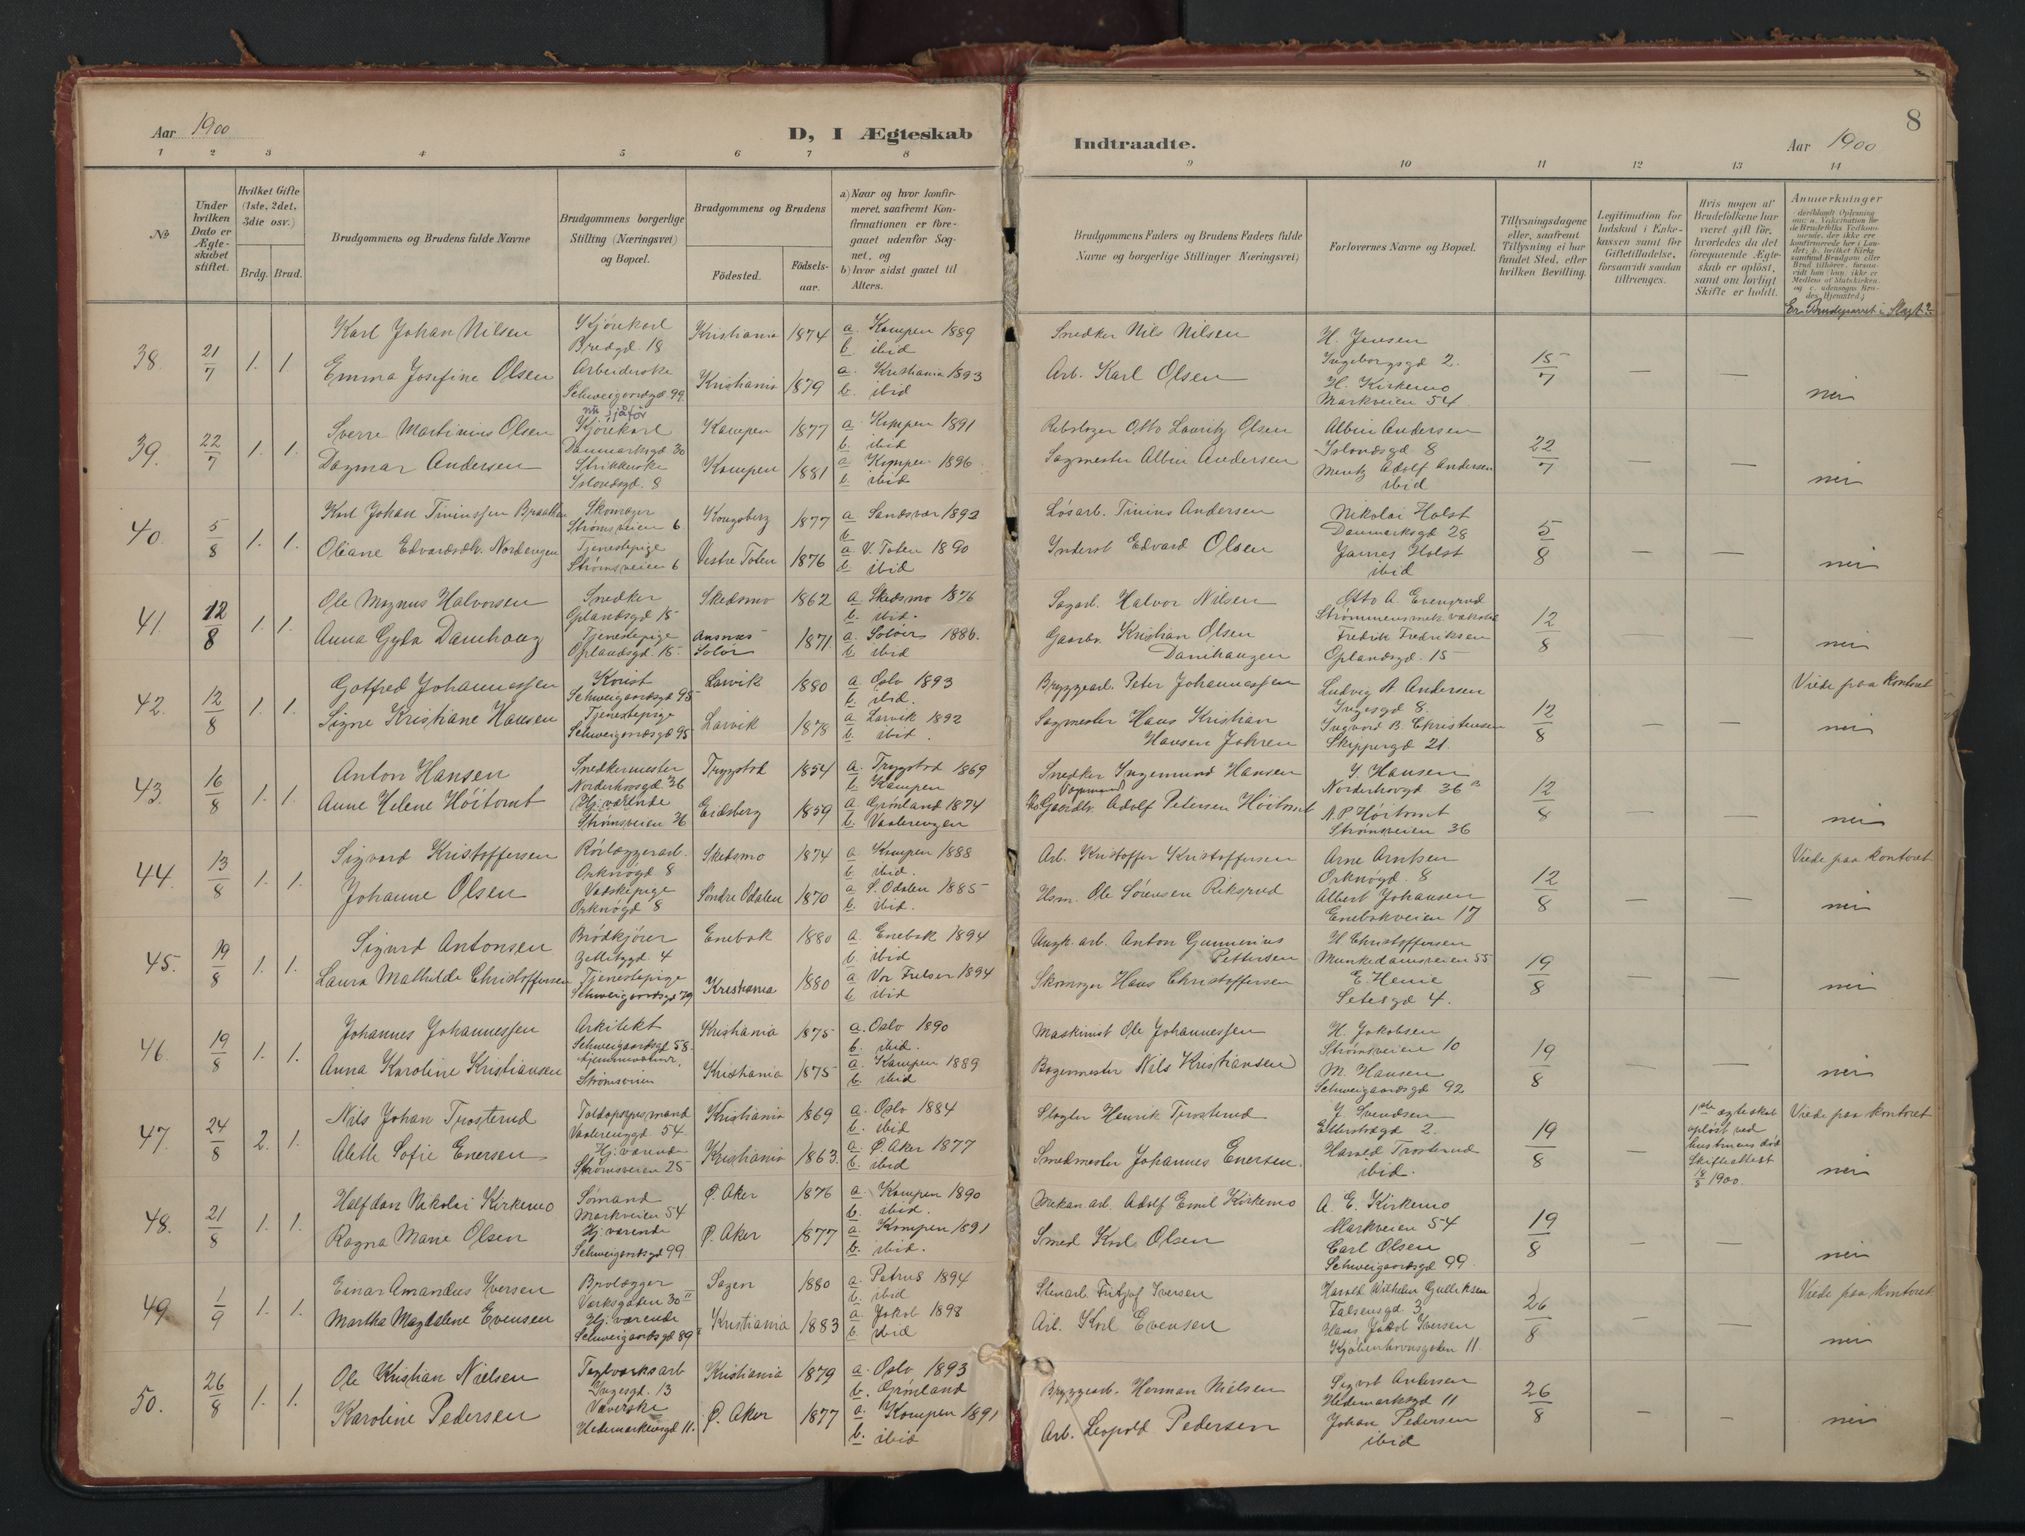 Aar 1900
D, I Ægteskab
1 2 3 4 5 6 7 8
No
Under hvilken Dato er Ægteskabet stiftet.
Hvilket Gifte (1ste, 2det, 3die osv.)
Brdg. Brud.
Brudgommens og Brudens fulde Navne
Brudgommens borgerlige Stilling (Næringsvei) og Bopæl.
Brudgommens og Brudens
Fødested. Fødselsaar.
a) Naar og hvor konfirmeret, saafremt Konfirmationen er foregaaet udenfor Sognet, og
b) hvor sidst gaaet til Alters.
38. 21/7 1. 1
Karl Johan Nilsen Kjørekarl Bredgd. 18 Kristiania 1874 a. Kampen 1889 b. ibid
Emma Josefine Olsen Arbeiderske Schweigaardsgd. 99. Kristiania 1879 a. Kristiania 1893 b. ibid
39. 22/7 1. 1.
Sverre Martinius Olsen Kjørekarl Danmarksgd 30 Kampen 1877 a. Kampen 1891 b. ibid
Dagmar Andersen Islandsgd. 8 Kampen 1881 a. Kampen 1896 b. ibid
40. 5/8 1. 1.
Karl Johan Skomager Strømsveien 6 Kongsberg 1877 a. Sandsvær 1892 b. ibid
Oliane Tjenestepige Strømsveien 6 Vestre Toten 1876 a. V. Toten 1890 b. ibid
41. 12/8 1. 1.
Ole Magnus Halvorsen Snedker Oplandsgd 15 Skedsmo 1862 a. Skedsmo 1876 b. ibid.
Anna Tjenestepige Oplandsgd. 15. Solør 1871. a. Solør 1886. b. ibid
42. 12/8 1. 1.
Gotfred Johannessen Schweigaardsgd 95 Larvik 1880 a. Oslo 1893 b. ibid.
Signe Kristiane Hansen Tjenestepige Schweigaardsgd 95 Larvik 1878 a. Larvik 1892 b. ibid.
43. 16/8 1. 1.
Anton Hansen Snedkermester Norderhovsgd 36 Trygstad 1854 a. Trygstad 1869 b. Kampen
Anne Helene Høitomt Hj. værende Strømsveien 36 Eidsberg 1859 a. Grønland 1874 b. Vaalerengen
44. 13/8 1. 1.
Sigvard Kristoffersen Rørlæggerarb. Orknøgd 8 Skedsmo 1874 a. Kampen 1888 b. ibid.
Johanne Olsen Vadskepige Orknøgd 8 Søndre Odalen 1870 a. S. Odalen 1885 b. ibid.
45. 19/8 1. 1.
Sigurd Antonsen Brødkjører Enebak 1880 a. Enebak 1894 b. ibid
Laura Mathilde Christoffersen Tjenestepige Schweigaardsgd 79 Kristiania 1880 a. Vor Frelser 1894 b. ibid
46. 19/8 1. 1.
Johannes Johannessen Arkitekt Schweigaardsgd 58. Kristiania 1875 a. Oslo 1890 b. ibid.
Anna Karoline Kristiansen Hjemmeværende Strømsveien Kristiania 1875 a. Kampen 1889 b. ibid
47. 24/8 2. 1.
Nils Johan Trosterud Vaalerenggd. 54. Kristiania 1869 a. Oslo 1884 b. ibid
Alette Sofie Enersen Hj. værende Strømsveien 25 Kristiania 1863. a. Ø. Aker 1877 b. ibid
48. 21/8 1. 1.
Halfdan Nikolai Kirkemo Sømand Markveien 54 Ø. Aker 1876 a. Kampen 1890 b. ibid.
Ragna Marie Olsen Hj. værende Schweigaardsgd 99. Ø. Aker 1877 a. Kampen 1891 b. ibid.
49. 1/9 1. 1.
Einar Amandus Iversen Brolægger Værksgaden 30 II Sagen 1880 a. Petrus 1894 b. ibid
Martha Magdalene Evensen Hj. værende Schweigaardsgd 89 Kristiania 1883 a. Jakob 1898 b. ibid
50. 26/8 1. 1.
Ole Kristian Nielsen Teglværksarb Ingesgd. 13 Kristiania 1879 a. Oslo 1893 b. Grønland
Karoline Pedersen Væverske Hedemarksgd 11. Ø. Aker 1877 a. Kampen 1891 b. ibid
8
Indtraadte.
Aar 1900
9 10 11 12 13 14
Brudgommens Faders og Brudens Faders fulde Navne og borgerlige Stillinger (Næringsvei)
Forlovernes Navne og Bopæl.
Tillysningsdagene eller, saafremt Tillysning ei har fundet Sted, efter hvilken Bevilling.
Legitimation for Indskud i Enkekassen samt for Giftetilladelse, forsaavidt saadan tiltrænges.
Hvis nogen af Brudefolkene har været gift før, hvorledes da det foregaaende Ægteskab er opløst, samt om lovligt Skifte er holdt.
Anmerkninger
Er Brudeparret i Slegt?
Snedker Nils Nilsen H. Jensen Ingeborgsgd 2. 15/7 — —
Arb. Karl Olsen H. Kirkemo Markveien 54 nei
Rebslager Otto Lauritz Olsen Albin Andersen Islandsgd 8 22/7 — —
Sagmester Albin Andersen Adolf Andersen ibid nei
Løsarb. Tinius Andersen Nikolai Holst Danmarksgd 28 5/8 — —
Inderst Edvard Olsen James Holst ibid nei
Sagarb. Halvor Nilsen Otto A. 12/8 — —
Gaardbr. Kristian Olsen Fredrik Fredriksen Oplandsgd. 15 nei
Bryggearb. Peter Johannessen Ludvig A. Andersen Ingesgd 8. 12/8 — — Viede paa kontoret
Sagmester Hans Kristian Hansen Ingvard B. Christensen Skippergd 21. nei
Snedker Ingemund Hansen J. Hansen Norderhovgd 36 a 12/8 — —
Adolf Petersen Høitomt N. P. Høitomt Strømsveien 36 nei
Arb. Kristoffer Kristoffersen Arne Arntsen Orknøgd. 8 12/8 — — Viede paa kontoret
Hsm. Ole Sørensen Riksrud Albert Johansen Enebakveien 17 nei
Anton Gunnerius Pettersen H. Christoffersen Munkedamsveien 55 19/8 — —
Skomager Hans Christoffersen E. Henie Setesgd 4. nei
Maskinist Ole Johannessen H. Jakobsen Strømsveien 10 19/8 — —
Bagermester Nils Kristiansen M. Hansen Schweigaardsgd 92 nei
Slagter Henrik Trosterud J. Svendsen Etterstadgd 2. 19/8 — 1ste ægteskab opløst ved hustruens død Skifteattest 18/8 1900. Viede paa kontoret
Smedmester Johannes Enersen. Harald Trosterud ibid. nei
Mekan. arb. Adolf Emil Kirkemo A. E. Kirkemo Markveien 54 19/8 — —
Smed Karl Olsen Carl Olsen Schweigaardsgd 99. nei
Stenarb. Fritjof Iversen Harald Wilhelm Gulliksen Falsensgd. 3 26/8 — — Viede paa kontoret
Arb. Karl Evensen Hans Jakob Iversen Kjøbenhavnsgaden 11. nei
Bryggearb. Herman Nielsen Sigvat Andersen Hedemarksgd 11 26/8 — —
Arb. Leopold Pedersen Johan Pedersen ibid nei